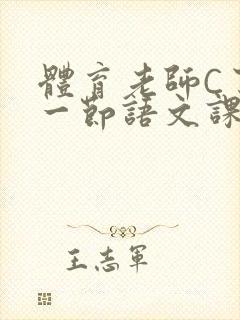 體育老師C
一節語文課
王志軍